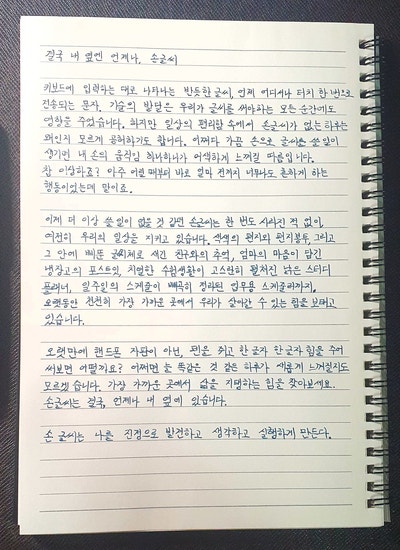 결국 내 옆엔 언제나, 손글씨
키보드에 입력하는 대로 나타나는 반듯한 글씨, 언제 어디서나 터치 한 번으로
전송되는 문자. 기술의 발달은 우리가 글씨를 써야하는 모든 순간에도
영향을 주었습니다. 하지만 일상의 편리함 속에서 손글씨가 없는 하루는
왜인지 모르게 공허하기도 합니다. 어쩌다 가끔 손으로 글씨를 쓸 일이
생기면 내 손의 움직임 하나하나가 어색하게 느껴질 따름입니다.
참 이상하죠? 아주 어릴 때부터 바로 얼마 전까지 너무나도 흔하게 하는
행동이었는데 말이죠.
이제 더 이상 쓸 일이 없을 것 같던 손글씨는 한 번도 사라진 적 없이,
여전히 우리의 일상을 지키고 있습니다. 색색의 편지와 편지봉투, 그리고
그 안에 삐뚠 글씨체로 새긴 친구와의 추억, 엄마의 마음이 담긴
냉장고의 포스트잇, 치열한 수험생활이 고스란히 펼쳐진 낡은 스터디
플래너, 일주일의 스케줄이 빼곡히 정리된 업무용 스케줄러까지,
오랫동안 천천히 가장 가까운 곳에서 우리가 살아갈 수 있는 힘을 보태고
있습니다.
오랫만에 핸드폰 자판이 아닌, 펜을 쥐고 한 글자 한 글자 힘을 주어
써보면 어떨까요? 어쩌면 늘 똑같은 것 같은 하루가 새롭게 느껴질지도
모르겠습니다. 가장 가까운 곳에서 삶을 지탱하는 힘을 찾아보세요.
손글씨는 결국, 언제나 내 옆에 있습니다.
손글씨는 나를 진정으로 발견하고 생각하고 실행하게 만든다.